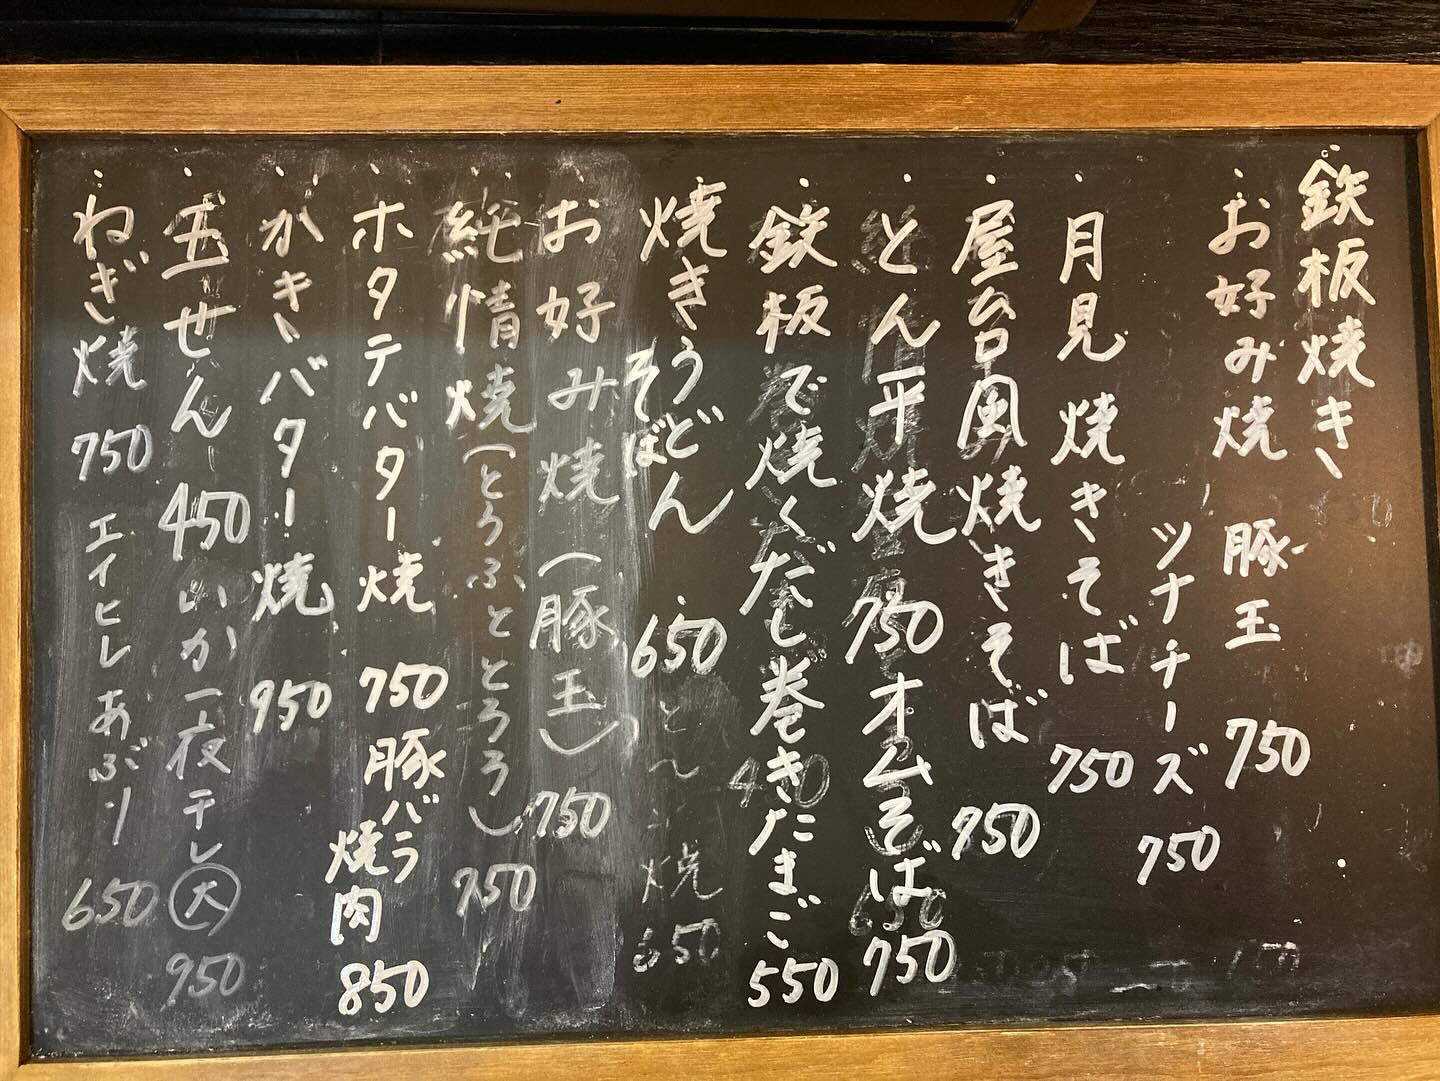 鉄板焼き
・お好み焼 豚玉 750
ツナチーズ 750
・月見焼きそば 750
・屋台風焼きそば 750
・とん平焼 750 オムそば 750
・鉄板で焼くだし巻きたまご 550
・焼きうどん そばん 650
焼 650
お好み焼(豚玉) 750
・純情焼(とうふととろろ) 750
・ホタテバター焼 750 豚バラ焼肉 850
・かきバター焼 950
・玉せん 450 いか一夜干し 大 950
・ねぎ焼 750 エイヒレあぶり 650